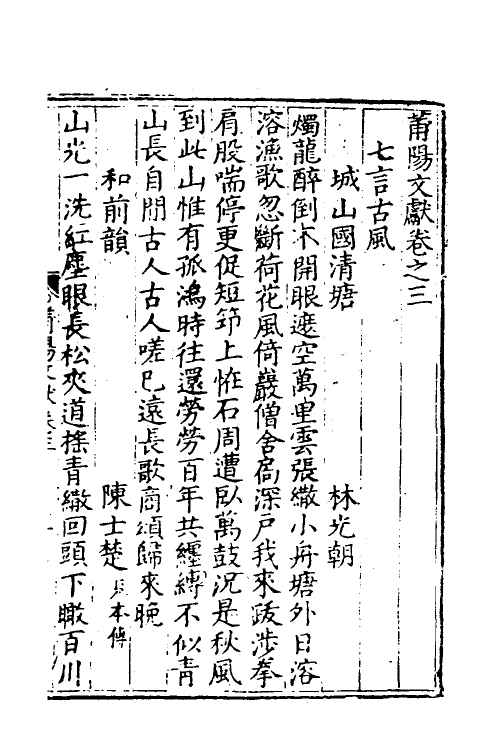 莆陽文獻卷之三
七言古風
城山國清塘 林光朝
燭龍醉倒不開眼遮空萬里雲張繖小舟塘外日溶
溶漁歌忽斷荷花風倚巖僧舍扃深戸我來跋涉拳
肩股喘停更促短筇上恠石周遭臥萬鼓況是秋風
到此山惟有孤鴻時往還勞勞百年共纏縛不似青
山長自閒古人古人嗟已遠長歌商頌歸來晚
和前韻 陳士楚見本傳
山光一洗紅塵眼長松夾道搖青繖回頭下瞰百川